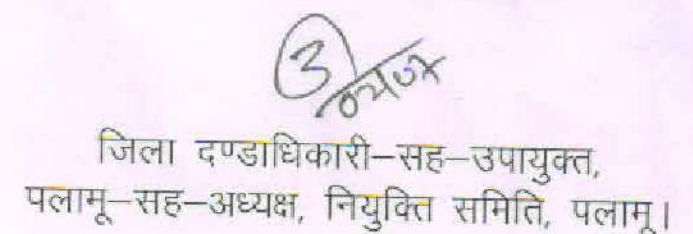 3
जिला दण्डाधिकारी–सह–उपायुक्त,
पलामू–सह–अध्यक्ष, नियुक्ति समिति, पलामू।